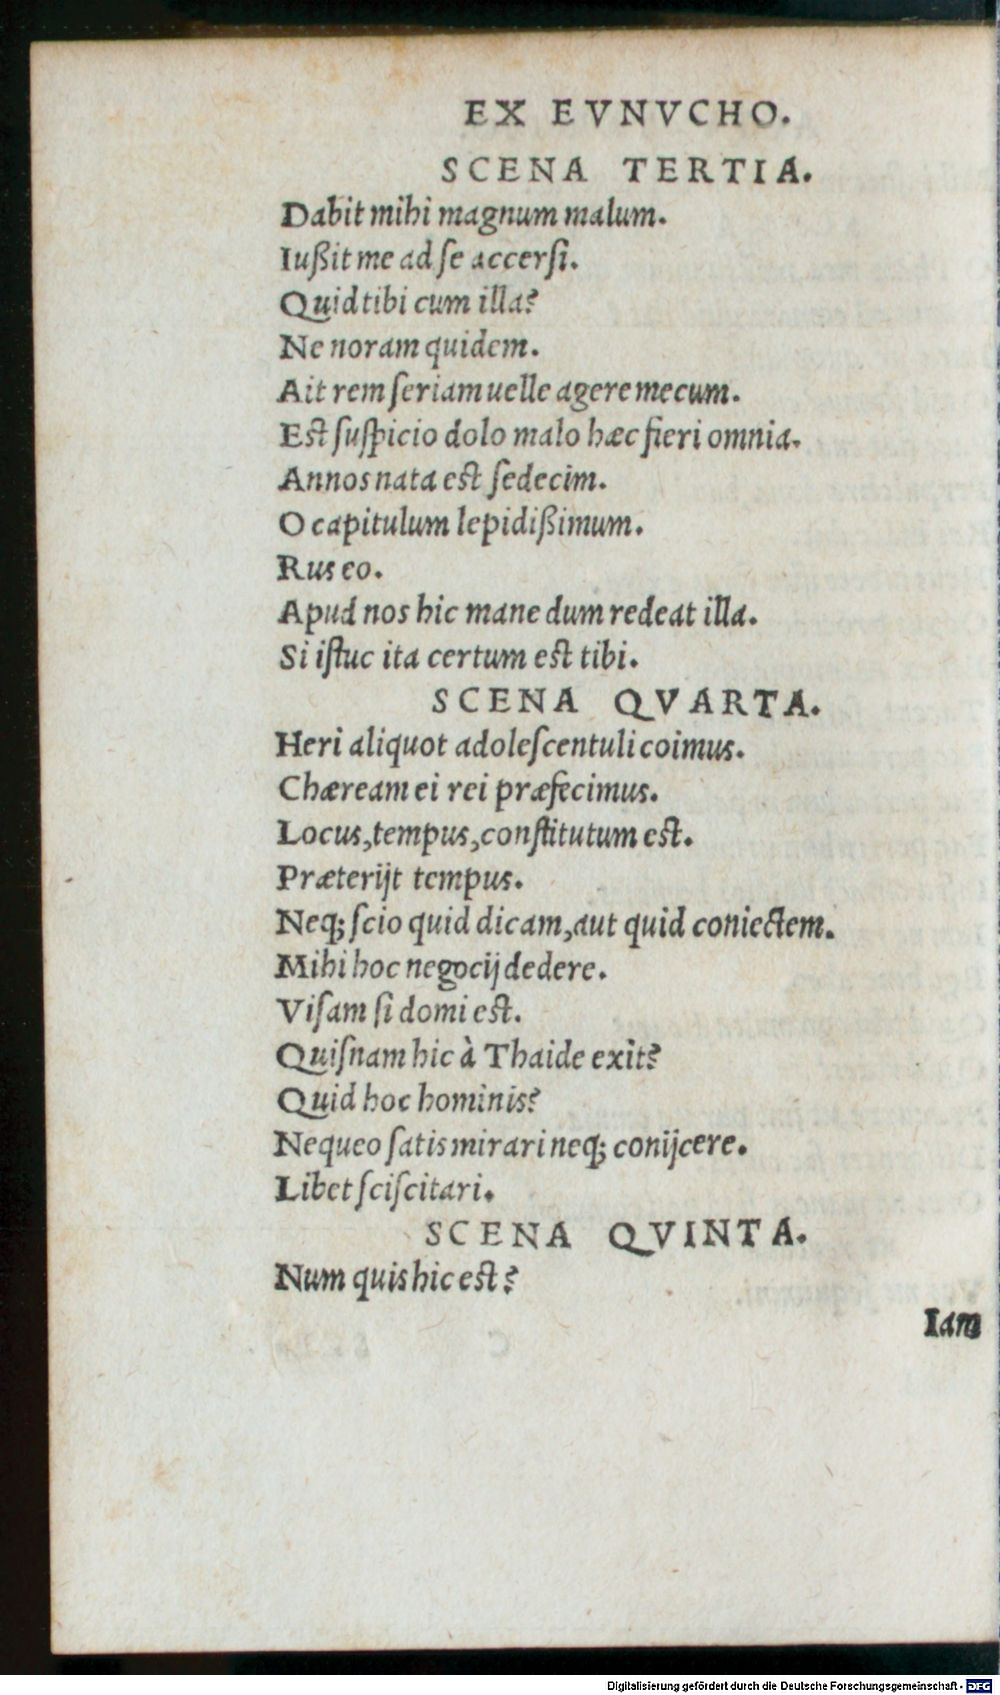 EX EVNVCHO.
SCENA TERTIA.
Dabit mihi magnum malum.
Iußit me ad ſe accerſi.
Quid tibi cum illa?
Ne noram quidem.
Ait rem ſeriam uelle agere mecum.
Est ſuſpicio dolo malo hæc fieri omnia.
Annos nata est ſedecim.
O capitulum lepidißimum.
Rus eo.
Apud nos hic mane dum redeat illa.
Si iſtuc ita certum est tibi.
SCENA QVARTA.
Heri aliquot adoleſcentuli coimus.
Chæream ei rei præfecimus.
Locus, tempus, conſtitutum est.
Præterijt tempus.
Neq; ſcio quid dicam, aut quid coniectem.
Mihi hoc negocij dedere.
Viſam ſi domi est.
Quiſnam hic à Thaide exit?
Quid hoc hominis?
Nequeo ſatis mirari neq; conijcere.
Libet ſciſcitari.
SCENA QVINTA.
Num quis hic est?
Iam
Digitalisierung gefördert durch die Deutsche Forschungsgemeinschaft - DFG